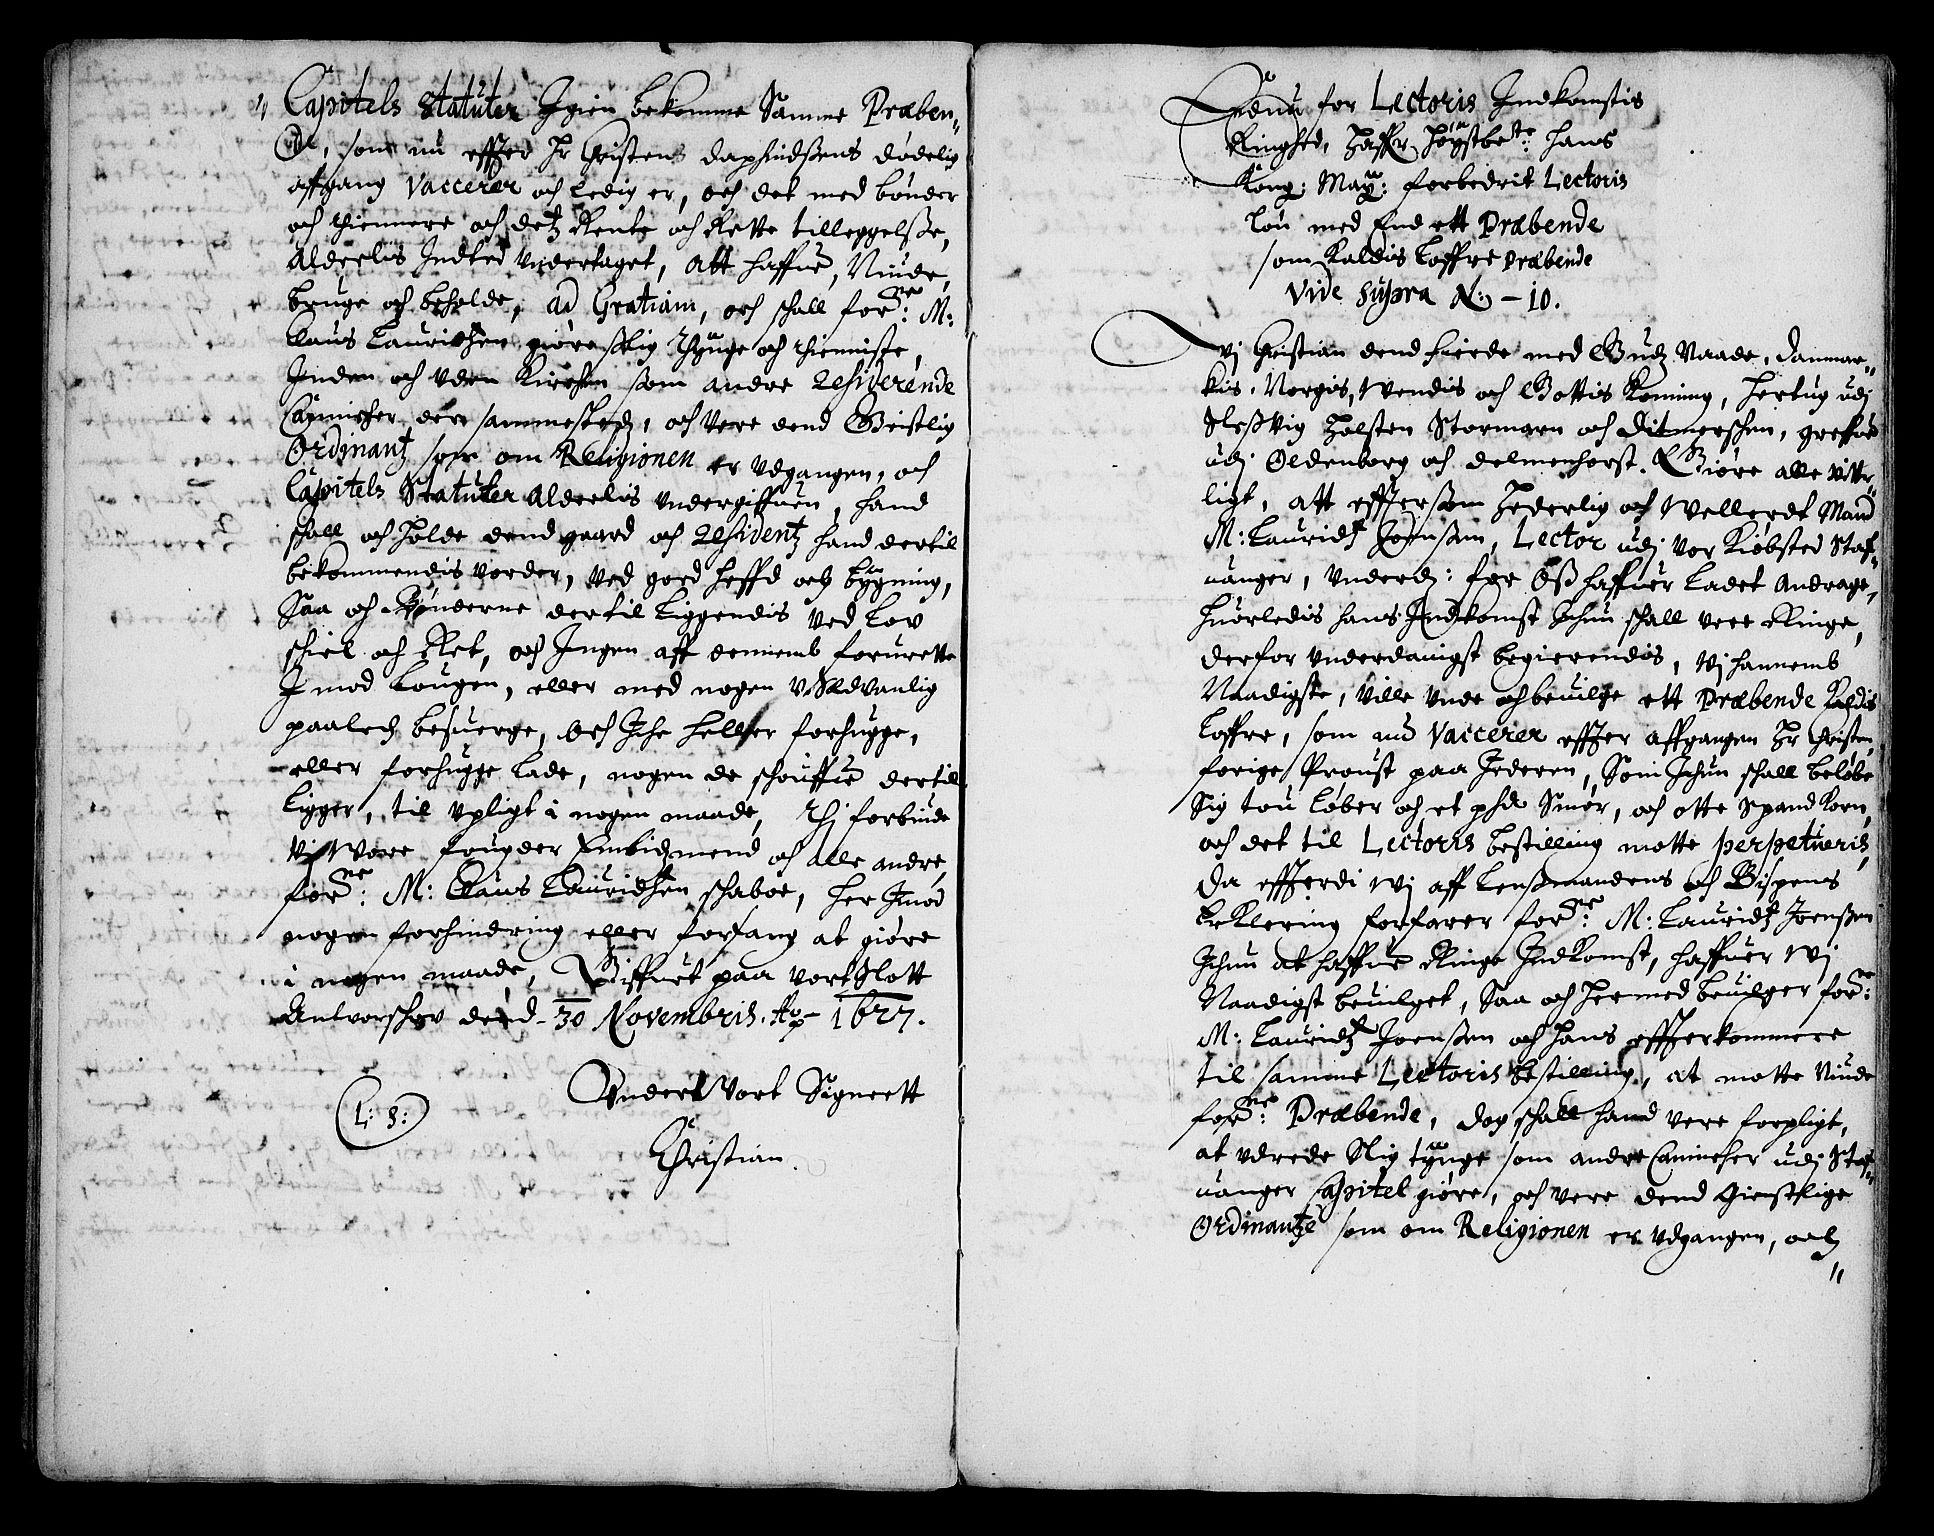 " Capitels Statuter Igien bekomme Samme Præben-
de, som nu effter Hr Christens dødelig
afgang Vaccerer och ledig er, och det med bønder
och thiennere och detz Rente och Rette tilleggelsße,
Alderlis Indted Undertaget, Att haffue, Niude,
bruge och beholde, ad Gratiam, och schall forne: M:
Claus Lauridsen giøre slig thynge och thienniste,
Inden och uden Kirchen som andre Residerende
Canicher der sammesteds, och vere dend Geistlig
Ordinantz som om Religionen er Udgangen, och
Capitels Statuter Alderlis Undergiffuen, hand
schall och holde dend gaard och Residentz hand dertil
bekommendis vorder, Ved god heffd och bygning,
Saa och Bønderne dertil Liggendis Ved Lov
schiel och Ret, och Ingen aff dennemb forurette
Imod Lougen, eller med nogen U-Sædvanlig
paaleg besuerge, Och Iche heller forhugge,
eller forhugge lade, nogen de schouffue dertill
Ligger, til Upligt i nogen maade, Thi forbiude
Vi Vore fougder Embidzmend och alle andre,
forne: M: Claus Lauridsen schaboe, her Imod
nogen forhindring eller forfang at giøre
i nogen maade, Giffuet paa vort Slott
Antvorschov dend - 30 Novembris. Ao - 1627.
Under Vort Signeett
L: S:
Christian.
Endnu for Lectoris Indkomstis
Ringhed, haffr høystbete: hans
Kong: May: forbedrit Lectoris
løn med End ett Præbende
som Kaldis Toffte Præbende
Vide supra N: - 10.
Vi Christian dend fierde med Gudz Naade, Danmar-
kis, Norgis, Wendis och Gottis Koning, hertug udj
Slesßvig Holsten Stormarn och Ditmerschen, greffue
udj Oldenborg och Delmenhorst. Giøre alle vitter-
ligt, att efftersom Hederlig och Wellerdt Mand
M: Lauridtz Joensßen, Lector udj vor Kiøbsted Staf-
uanger, Underd: for Osß haffuer ladet Andrage,
huorledis hans Indkomst Ichun schall vere Ringe,
derfor Underdanigst begierendis, Wj hannemb
Naadigste, Ville Unde och beuilge ett Præbende Kaldis
Toffte, som nu Vaccerer effter affgangen Hr Christen,
forige Proust paa Jederen, Som Ichun schall beløbe
Sig tou Løber och et phd Smør, och otte Spand Korn,
och det til Lectoris bestilling motte perpetueris,
Da effterdi Wj aff Lensßmandens och Bispens
Erklering forfarer forne: M: Lauridtz Joensßen
Ichun at haffue Ringe Indkomst, haffuer Wj
Naadigst beuilget, Saa och hermed beuilger forne:
M: Lauridtz Joensßen och hans effterkommere
til samme Lectoris bestilling, at motte Niude
forne: Præbende, dog schall hand vere forpligt,
at udrede Slig tynge som andre Canicher udj Staf-
uanger Capitel giøre, och vere dend Gieistlige
Ordinantze som om Religionen er Udgangen, och
"